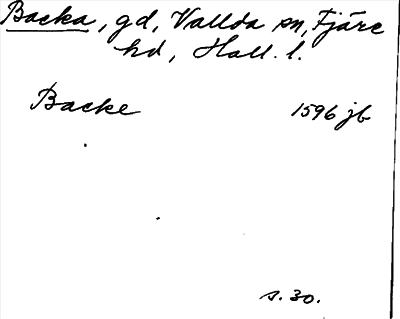 Backa, gd, Vallda sn, Fjäre
hd, Hall. l.
Backe 1596 jb
s. 30.